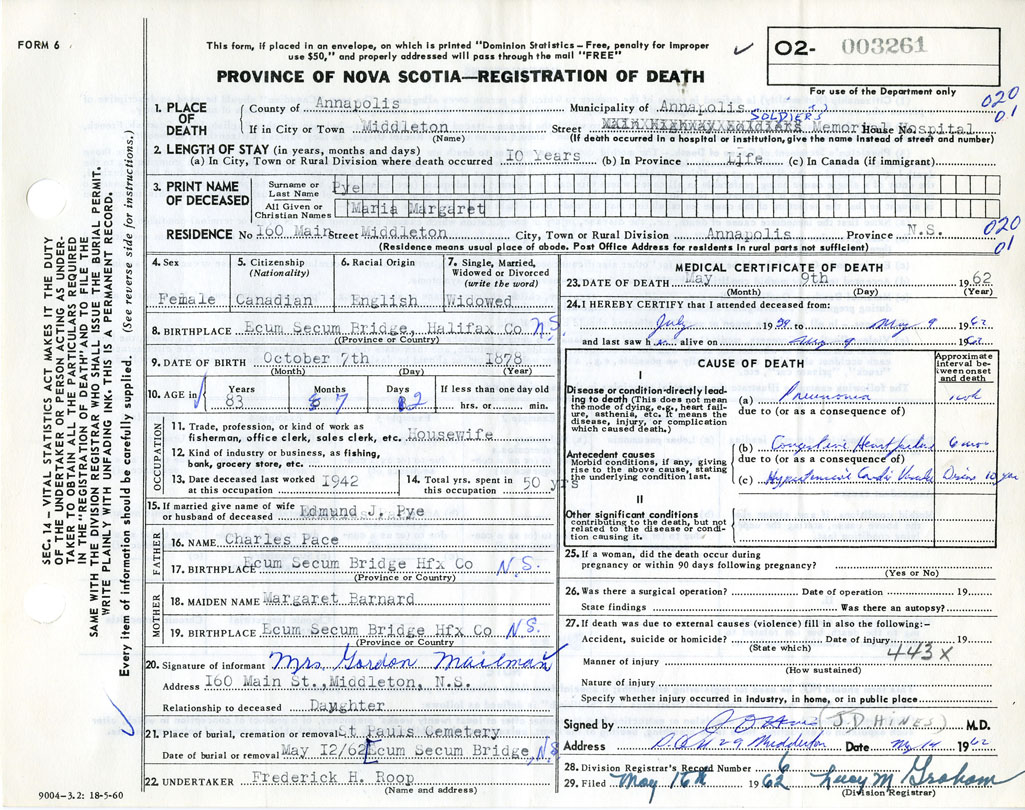 FORM 6
This form, if placed in an envelope, on which is printed "Dominion Statistics – Free, penalty for improper
use $50," and properly addressed will pass through the mail "FREE"
O2- 003261
PROVINCE OF NOVA SCOTIA—REGISTRATION OF DEATH
For use of the Department only
1. PLACE OF DEATH
County of Annapolis Municipality of Annapolis
020
01
SOLDIERS
If in City or Town Middleton (Name) Street Memorial Hospital House No.
(If death occurred in a hospital or institution, give the name instead of street and number)
2. LENGTH OF STAY (in years, months and days)
(a) In City, Town or Rural Division where death occurred 10 Years (b) In Province Life (c) In Canada (if immigrant)
3. PRINT NAME OF DECEASED
Surname or Last Name Pye
All Given or Christian Names Maria Margaret
RESIDENCE No 160 Main Street Middleton City, Town or Rural Division Annapolis Province N.S.
020
01
(Residence means usual place of abode. Post Office Address for residents in rural parts not sufficient)
4. Sex Female
5. Citizenship (Nationality) Canadian
6. Racial Origin English
7. Single, Married, Widowed or Divorced (write the word) Widowed
8. BIRTHPLACE Ecum Secum Bridge, Halifax Co N.S.
(Province or Country)
9. DATE OF BIRTH October 7th 1878
(Month) (Day) (Year)
10. AGE in Years 83 Months 7 Days 2 If less than one day old hrs. or min.
OCCUPATION
11. Trade, profession, or kind of work as
fisherman, office clerk, sales clerk, etc. Housewife
12. Kind of industry or business, as fishing,
bank, grocery store, etc.
13. Date deceased last worked at this occupation 1942
14. Total yrs. spent in this occupation 50 yrs
15. If married give name of wife or husband of deceased Edmund J. Pye
FATHER
16. NAME Charles Pace
17. BIRTHPLACE Ecum Secum Bridge Hfx Co N.S.
(Province or Country)
MOTHER
18. MAIDEN NAME Margaret Barnard
19. BIRTHPLACE Ecum Secum Bridge Hfx Co N.S.
(Province or Country)
20. Signature of informant Mrs. Gordon Mailman
Address 160 Main St., Middleton, N.S.
Relationship to deceased Daughter
21. Place of burial, cremation or removal St Pauls Cemetery
Date of burial or removal May 12/62 Ecum Secum Bridge, N.S
22. UNDERTAKER Frederick H. Roop
(Name and address)
9004-3.2: 18-5-60
MEDICAL CERTIFICATE OF DEATH
23. DATE OF DEATH May 9th 1962
(Month) (Day) (Year)
24. I HEREBY CERTIFY that I attended deceased from:
July 1959 to May 9 1962
and last saw her alive on May 9 1962
CAUSE OF DEATH
Approximate interval between onset and death
I
Disease or condition directly leading to death (This does not mean
the mode of dying, e.g., heart failure, asthenia, etc. It means the
disease, injury, or complication which caused death.)
(a) Pneumonia 1 wk
due to (or as a consequence of)
Antecedent causes
Morbid conditions, if any, giving rise to the above cause, stating
the underlying condition last.
(b) Congestive Heart failure 6 mos
due to (or as a consequence of)
(c) Hypertensive Cardio Vascular Disease 10 yrs
II
Other significant conditions
contributing to the death, but not related to the disease or condition causing it.
25. If a woman, did the death occur during
pregnancy or within 90 days following pregnancy?
(Yes or No)
26. Was there a surgical operation? Date of operation 19
State findings Was there an autopsy?
27. If death was due to external causes (violence) fill in also the following:-
Accident, suicide or homicide? Date of injury 19
(State which)
443X
Manner of injury
(How sustained)
Nature of injury
Specify whether injury occurred in Industry, in home, or in public place
Signed by (J.D HINES) M.D.
Address Middleton Date May 1962
28. Division Registrar's Record Number 6
29. Filed May 16th 1962 Lucy M Graham
(Division Registrar)
SEC. 14 – VITAL STATISTICS ACT MAKES IT THE DUTY
OF THE UNDERTAKER OR PERSON ACTING AS UNDERTAKER
TO OBTAIN ALL THE PARTICULARS REQUIRED
IN THE "REGISTRATION OF DEATH" AND TO FILE THE
SAME WITH THE DIVISION REGISTRAR WHO SHALL ISSUE THE BURIAL PERMIT.
WRITE PLAINLY WITH UNFADING INK. THIS IS A PERMANENT RECORD.
Every item of information should be carefully supplied. (See reverse side for instructions.)